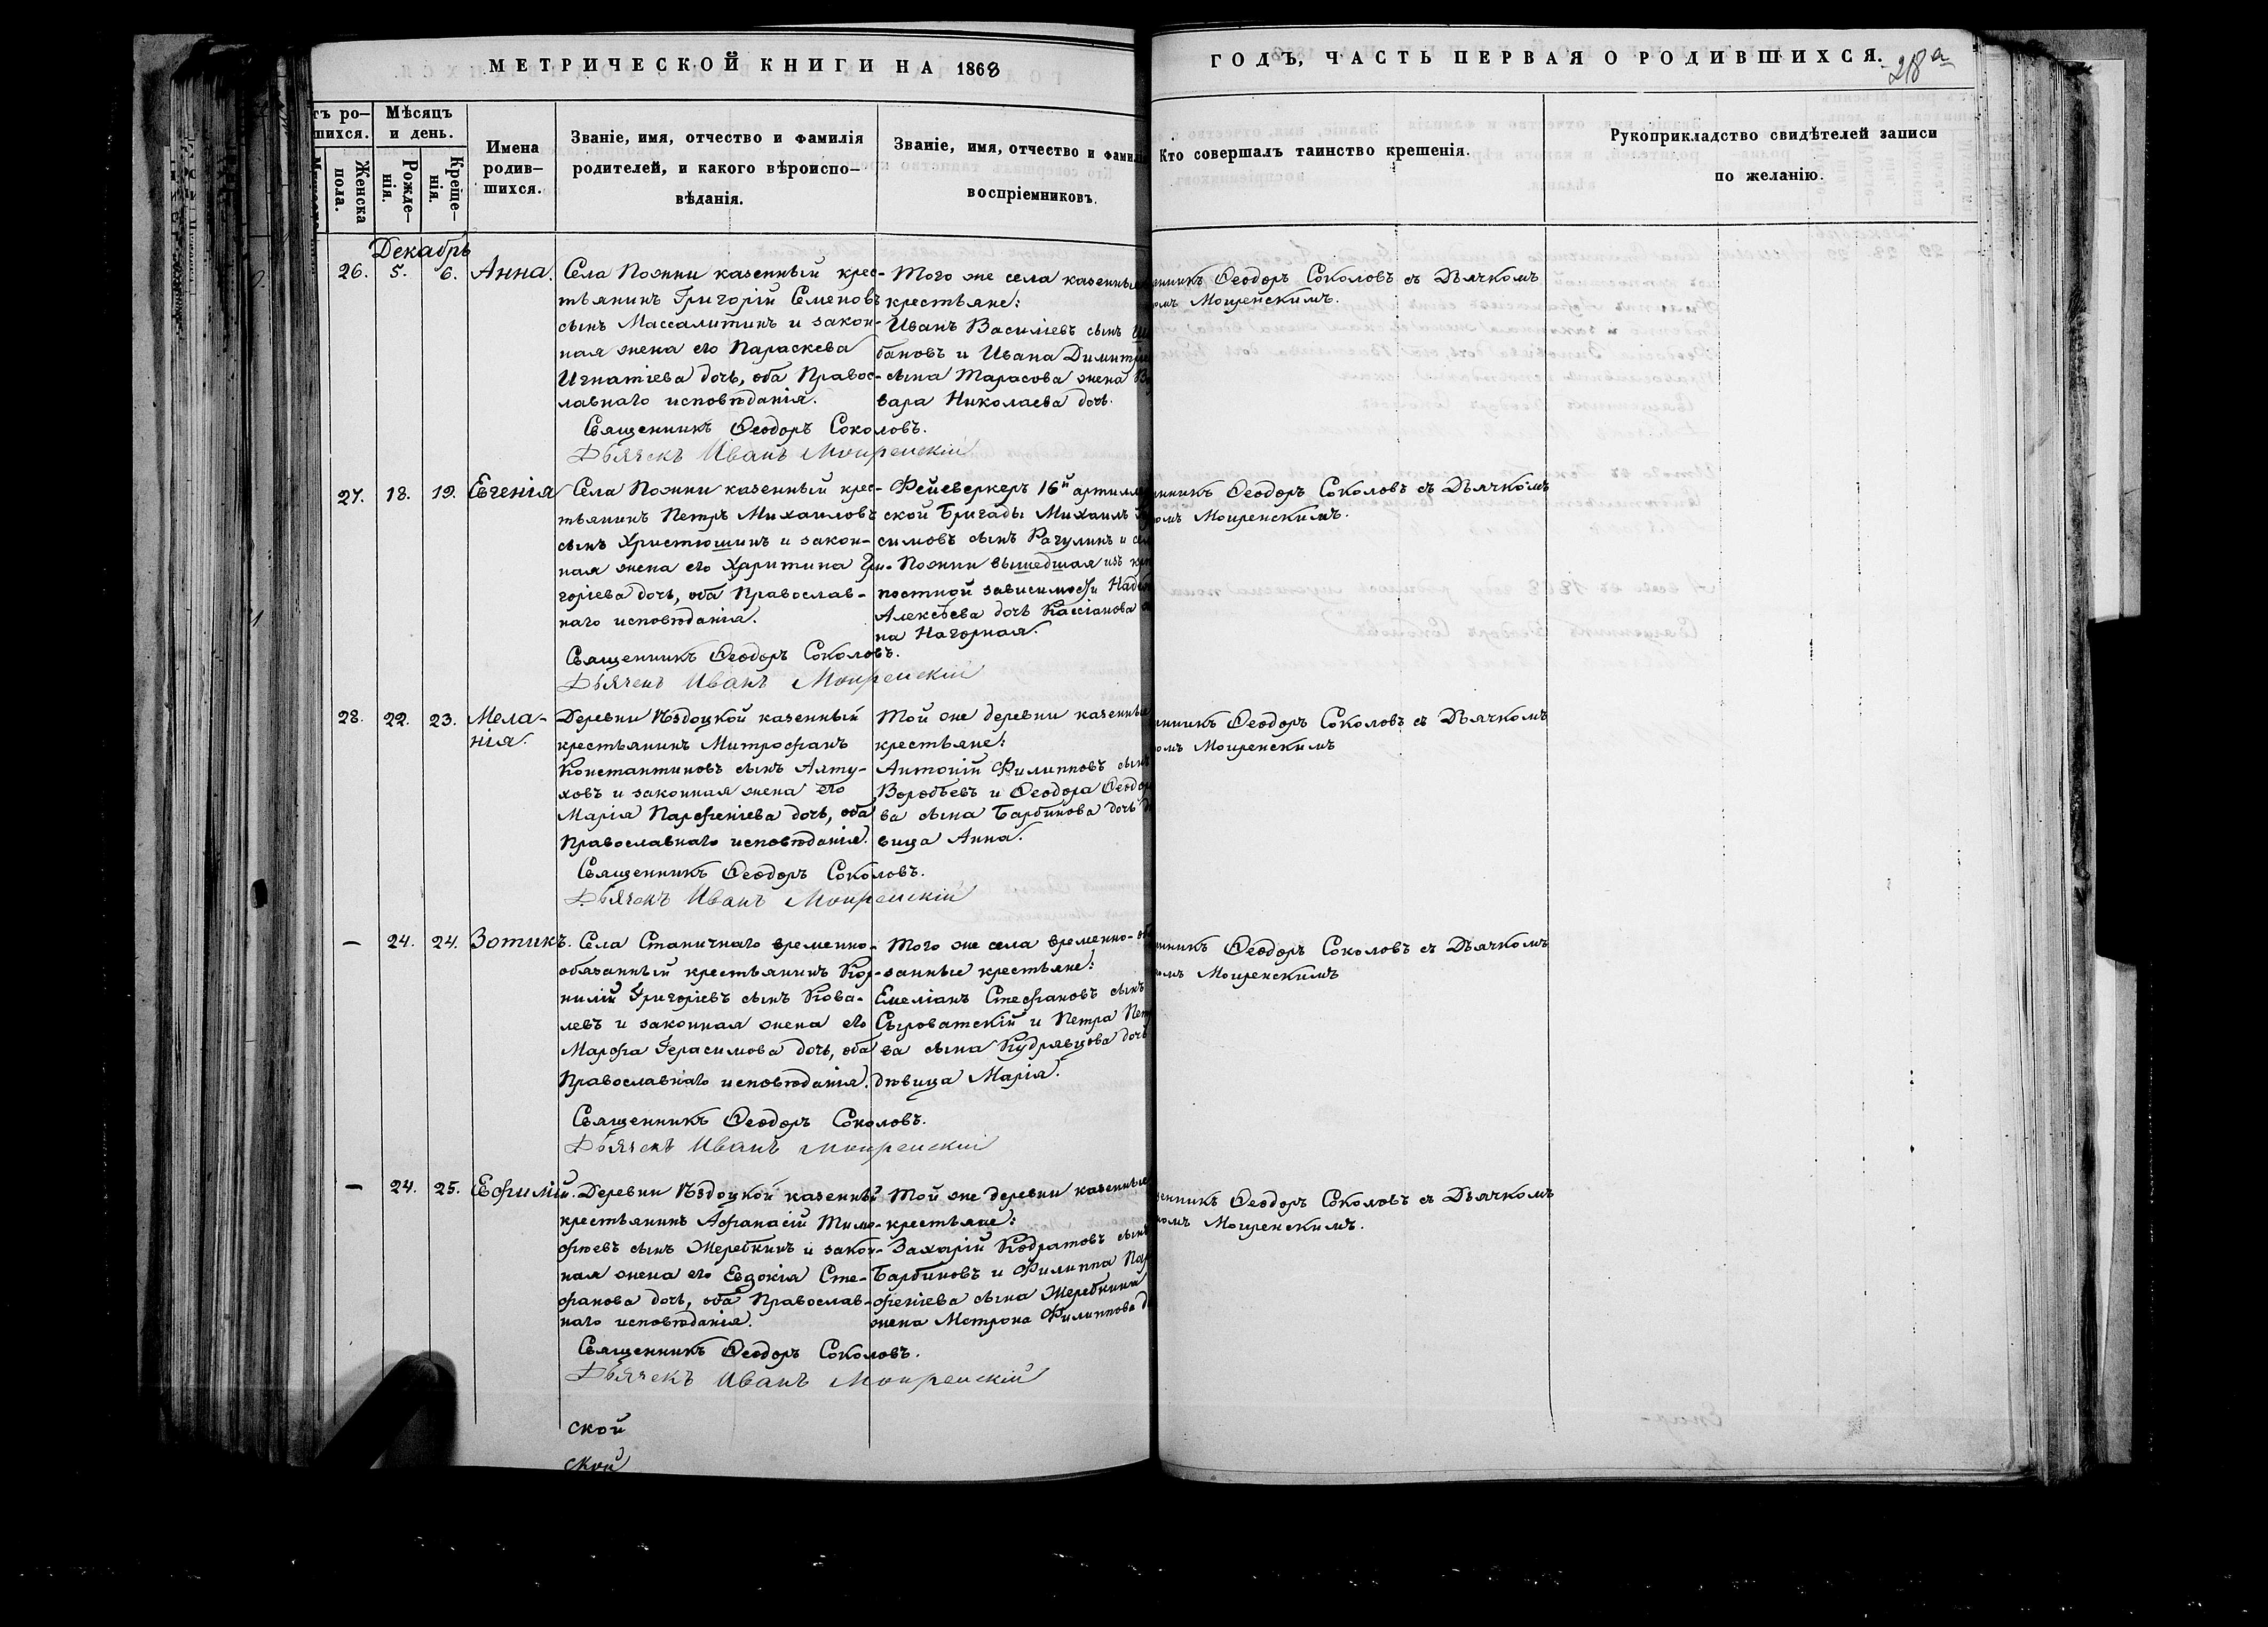 МЕТРИЧЕСКОЙ КНИГИ НА 1868
ГОДЪ, ЧАСТЬ ПЕРВАЯ О РОДИВШИХСЯ.
218а
тъ ро-
шихся.
Женска
пола.
Мѣсяцъ
и день.
Рожде-
нія.
Креще-
нія.
Имена
родив-
шихся.
Званіе, имя, отчество и фамилія
родителей, и какого вѣроиспо-
вѣданія.
Званіе, имя, отчество и фамилі
воспріемниковъ.
Кто совершалъ таинство крешенія.
Рукоприкладство свидѣтелей записи
по желанію.
Декабрь
26. 5. 6. Анна.
Села Пожни казенный крес-
тьянинъ Григорій Семеновъ
сынъ Массалитинъ и закон-
ная жена его Параскева
Игнатіева дочь, оба Правос-
лавнаго исповѣданія.
Священникъ Ѳеодоръ Соколовъ.
Дьячекъ Иванъ Мощенскій
Того же села казенные
крестьяне:
Иванъ Василіевъ сынъ
бановъ и Ивана Димитрі
сына Тарасова жена Ва
вара Николаева дочь.
нникъ Ѳеодоръ Соколовъ съ Дьячкомъ
омъ Мощенскимъ.
27. 18. 19. Евгенія
Села Пожни казенный крес-
тьянинъ Петръ Михаиловъ
сынъ Христюшинъ и закон-
ная жена его Харитина Гри-
горіева дочь, оба Православ-
наго исповѣданія.
Священникъ Ѳеодоръ Соколовъ.
Дьячекъ Иванъ Мощенскій
Фейеверкеръ 16й артилле
ской Бригады Михаилъ
симовъ сынъ Рагулинъ и сел
Пожни вышедшая изъ крѣ
постной зависимости Надеж
Алексѣева дочь Кассіанова
на Нагорная.
нникъ Ѳеодоръ Соколовъ съ Дьячкомъ
омъ Мощенскимъ.
28. 22. 23. Мела-
нія.
Деревни Ѣздоцкой казенный
крестьянинъ Митрофанъ
Константиновъ сынъ Алту-
ховъ и законная жена его
Марія Парфеніева дочь, оба
Православнаго исповѣданія.
Священникъ Ѳеодоръ Соколовъ.
Дьячекъ Иванъ Мощенскій
Той же деревни казенные
крестьяне:
Антоній Филипповъ сынъ
Воробьевъ и Ѳеодора Ѳеодор
ва сына Барбинова дочь
вица Анна.
нникъ Ѳеодоръ Соколовъ съ Дьячкомъ
омъ Мощенскимъ
— 24. 24. Зотикъ.
Села Станичнаго временно-
обязанный крестьянинъ Кор-
нилій Григоріевъ сынъ Кова-
левъ и законная жена его
Марфа Герасимова дочь, оба
Православнаго исповѣданія.
Священникъ Ѳеодоръ Соколовъ.
Дьячекъ Иванъ Мощенскій
Того же села временно-об
занные крестьяне:
Емеліанъ Стефановъ сынъ
Сыроватскій и Петра Пет
ва сына Кудрявцова дочь
дѣвица Марія.
нникъ Ѳеодоръ Соколовъ съ Дьячкомъ
омъ Мощенскимъ
— 24. 25. Ефимій.
Деревни Ѣздоцкой казенный
крестьянинъ Афанасій Тимо-
фѣевъ сынъ Жеребкинъ и закон-
ная жена его Евдокія Сте-
фанова дочь, оба Православ-
наго исповѣданія.
Священникъ Ѳеодоръ Соколовъ.
Дьячекъ Иванъ Мощенскій
Той же деревни казенные
крестьяне:
Захарій Кодратовъ сынъ
Барбиновъ и Филиппа Пар
феніева сына Жеребкина
жена Матрона Филиппова д
енникъ Ѳеодоръ Соколовъ съ Дьячкомъ
омъ Мощенскимъ.
ской
ской